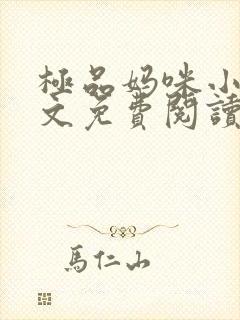 極品妈咪小
文免費閱讀
馬仁山